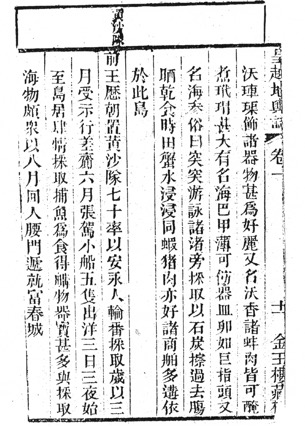 皇越地輿誌 卷一 十一 金玉樓藏板
沃璉珠飾諸器物甚爲好麗又名沃香諸蚌肉皆可醃
煮玳瑁甚大有名海巴甲薄可飾器皿卵如巨指頭又
名海參俗曰突突游詠諸渚旁採取以石炭擦過去腸
晒乾食時田蟹水浸浸同蝦猪肉亦好諸商舶多遭依
於此島
沙隊
前王歷朝置黃沙隊七十率以安永人輪番採取歲以三
月受示行差齎六月張駕小船五隻出洋三日三夜始
至島居肆情採取捕魚爲食得艚物器寶甚多與採取
海物頗衆以八月回入腰門遞就富春城